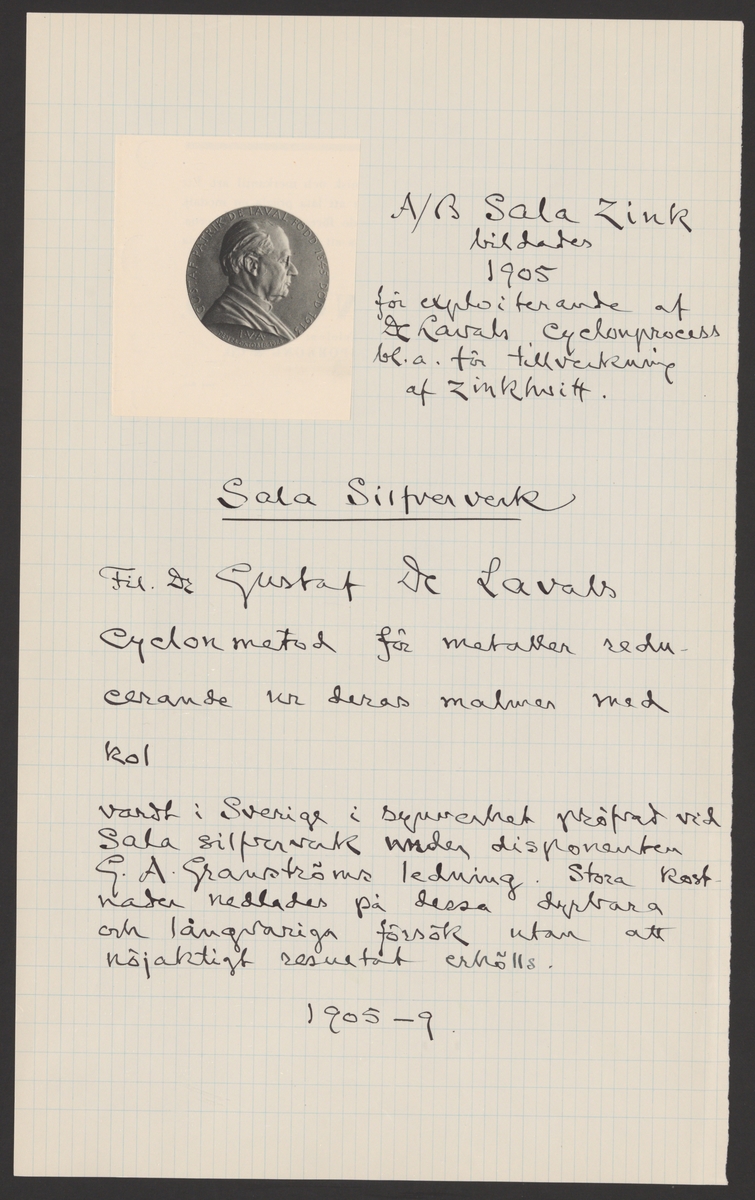 A/B Sala Zink
bildades
1905
för exploiterande af
De Lavals Cyclonprocess
bl.a. för tillverkning
af Zinkhvitt.
GUSTAF PATRIK DE LAVAL
IVA
Sala Silfververk
Fil. Dr Gustaf De Lavals
Cyclonmetod för metaller redu-
cerande ur deras malmer med
kol
vardt i Sverige i synnerhet pröfvad vid
Sala silfververk under disponenten
G. A. Granströms ledning. Stora kost-
nader nedlades på dessa dyrbara
och långvariga försök utan att
nöjaktigt resultat erhölls.
1905–9.